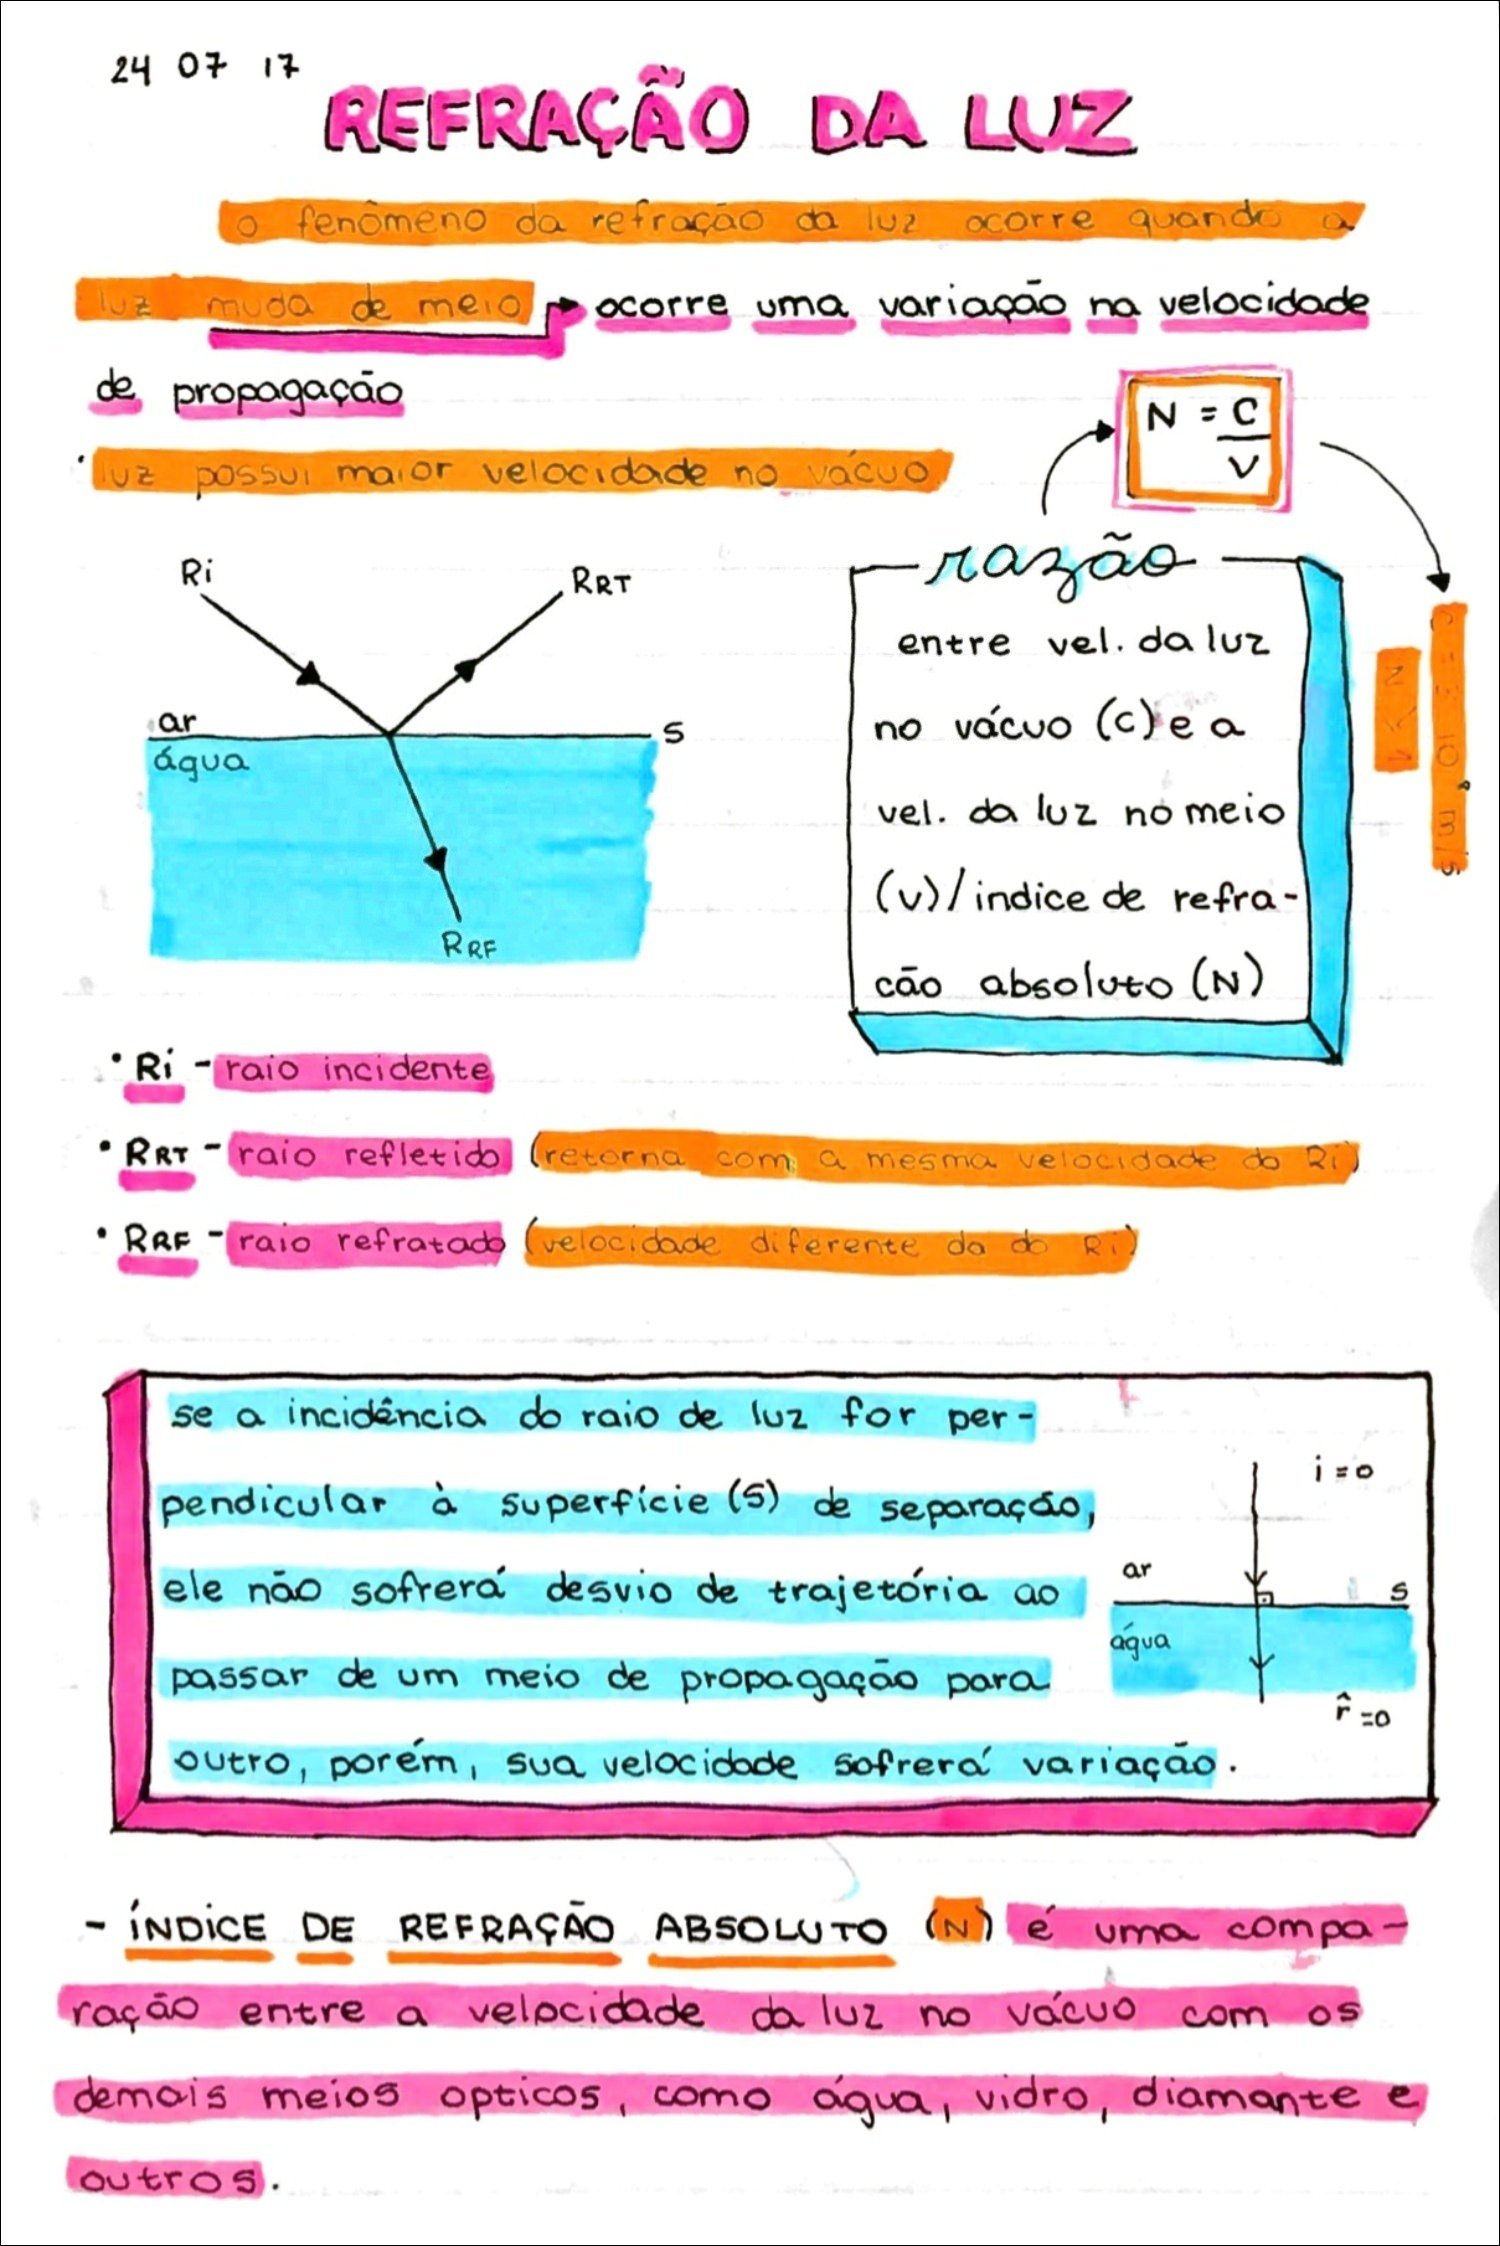 24 07 17
REFRAÇÃO DA LUZ
o fenômeno da refração da luz ocorre quando a
luz muda de meio → ocorre uma variação na velocidade
de propagação
N = C
V
• luz possui maior velocidade no vácuo
razão
entre vel. da luz
no vácuo (C) e a
vel. da luz no meio
(V)/indice de refra-
cão absoluto (N)
Ri
RRT
ar
S
água
RRF
• Ri - raio incidente
• RRT - raio refletido (retorna com a mesma velocidade do Ri)
• RRF - raio refratado (velocidade diferente da do Ri)
se a incidência do raio de luz for per-
pendicular à superfície (S) de separação,
ele não sofrerá desvio de trajetória ao
passar de um meio de propagação para
outro, porém, sua velocidade sofrerá variação.
i = 0
ar
S
água
r̂ = 0
- ÍNDICE DE REFRAÇÃO ABSOLUTO (N) é uma compa-
ração entre a velocidade da luz no vácuo com os
demais meios opticos, como água, vidro, diamante e
outros.